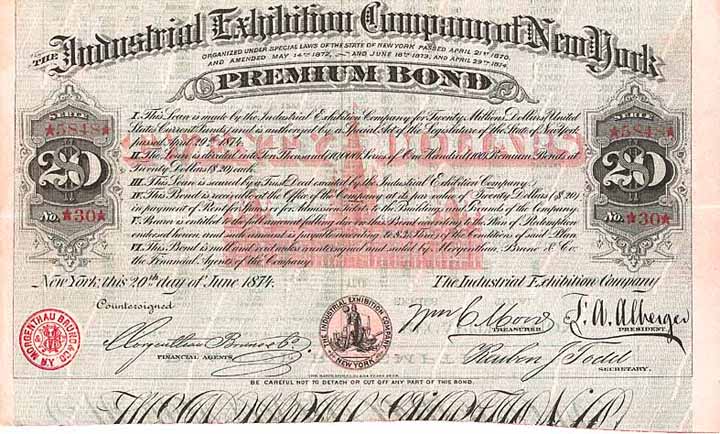 THE Industrial Exhibition Company of New York
ORGANIZED UNDER SPECIAL LAWS OF THE STATE OF NEW YORK PASSED APRIL 21ST 1870,
AND AMENDED MAY 14TH 1872, AND JUNE 16TH 1873, AND APRIL 29TH 1874.
PREMIUM BOND
SERIE
★5848★
20
No. ★30★
I. This Loan is made by the Industrial Exhibition Company for Twenty Millions Dollars, (United
States Current Funds) and is authorized by a Special Act of the Legislature of the State of New York
passed April 29th 1874.
II. The Loan is divided into Ten Thousand (10,000) Series of One Hundred (100) Premium Bonds at
Twenty Dollars ($20) each.
III. This Loan is secured by a Trust Deed executed by the Industrial Exhibition Company.
IV. This Bond is receivable at the Office of the Company at its par value of Twenty Dollars ($20)
in payment of Space, for Admission Tickets to the Building, and for rents of the Company.
V. Bearer is entitled to the full amount falling due on this Bond according to the Plan of Redemption
endorsed hereon, and such amount is payable according to § 2 & 3 of the Conditions of said Plan
VI. This Bond is null and void unless countersigned and sealed by Morgenthau, Bruno & Co.
the Financial Agents of the Company.
SERIE
★5848★
20
No. ★30★
New York, this 20th day of June 1874.
The Industrial Exhibition Company
Countersigned
MORGENTHAU BRUNO & CO. N.Y.
Morgenthau Bruno & Co.
FINANCIAL AGENTS.
THE INDUSTRIAL EXHIBITION COMPANY
NEW YORK
TREASURER
F. A. Alberger
PRESIDENT.
Reuben J Todd
SECRETARY.
BE CAREFUL NOT TO DETACH OR CUT OFF ANY PART OF THIS BOND.